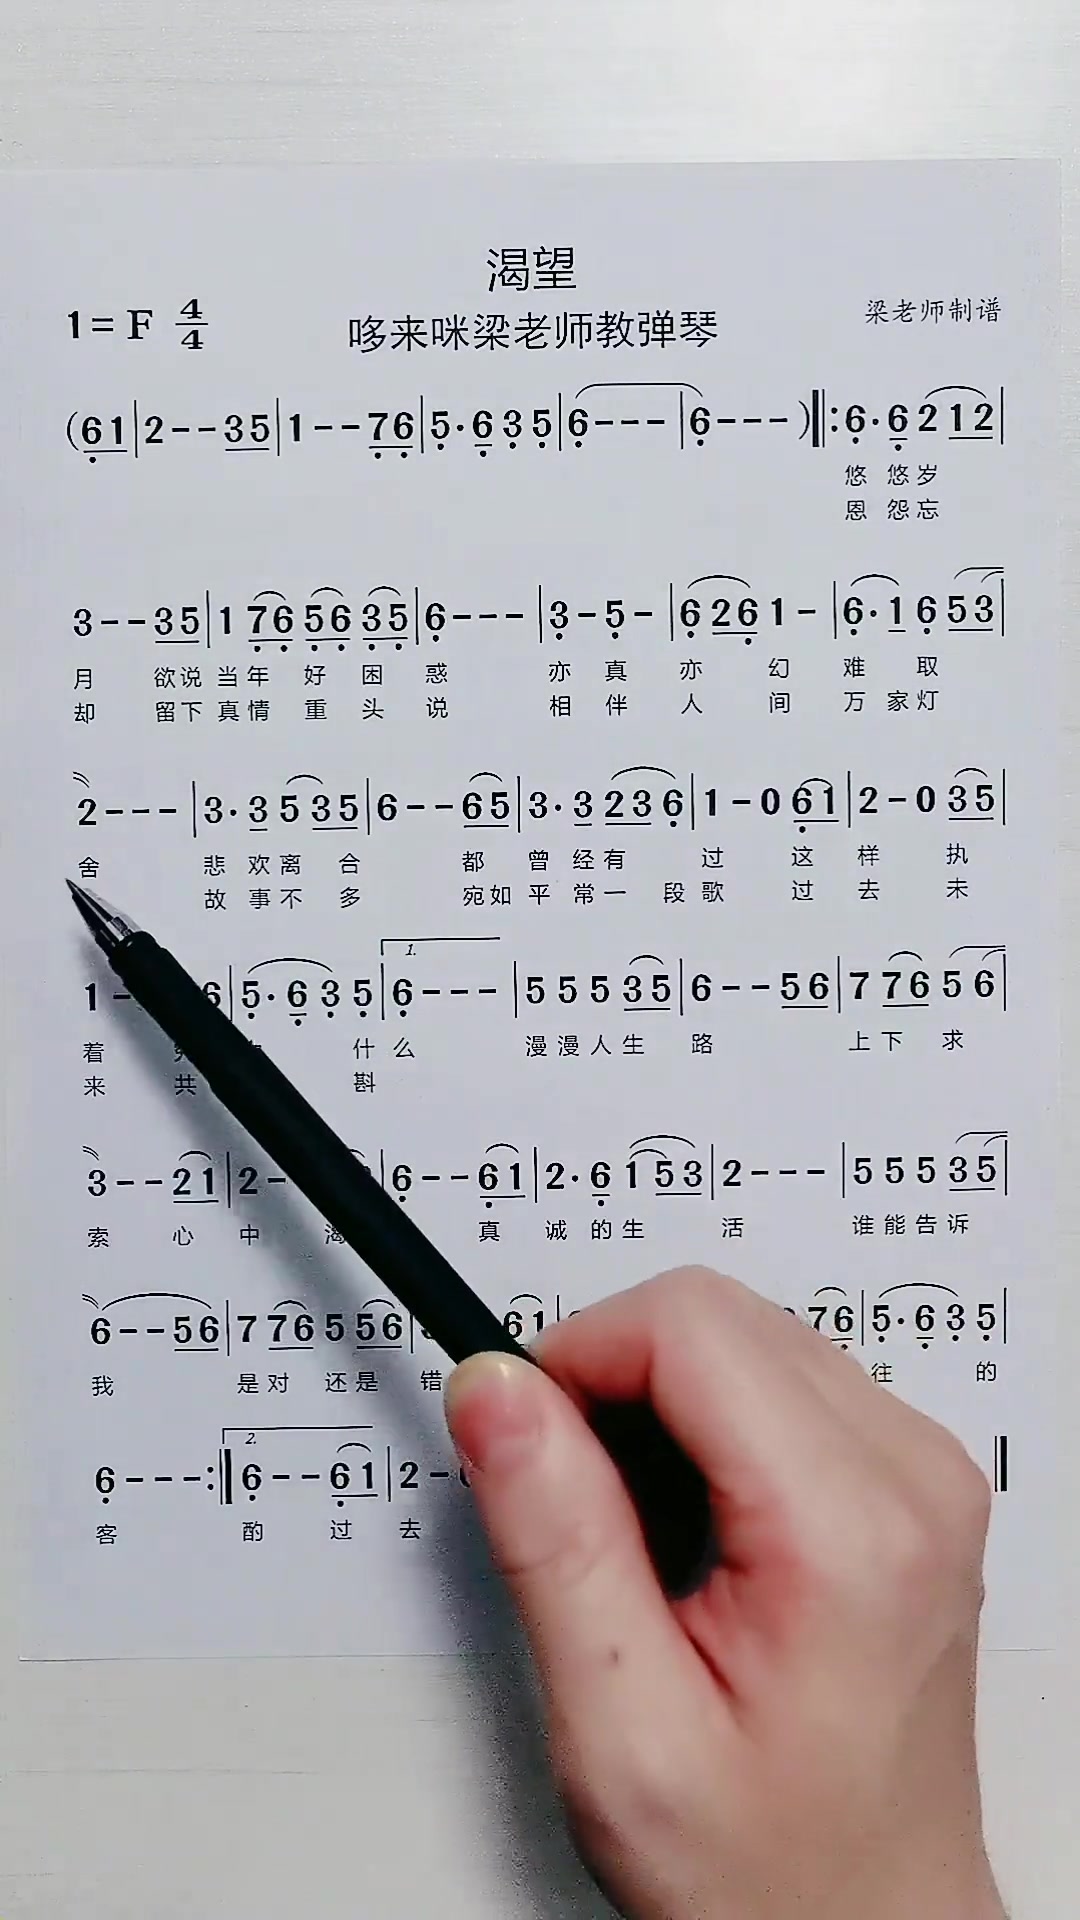 渴望
1=F 4/4
哆来咪梁老师教弹琴
梁老师制谱
(6 1|2--3 5|1--7 6|5·6 3 5|6---|6---)‖:6·6 2 1 2|
悠 悠 岁
恩 怨 忘
3--3 5|1 7 6 5 6 3 5|6---|3-5-|6 2 6 1-|6·1 6 5 3|
月 欲说 当年 好 困 惑 亦 真 亦 幻 难 取
却 留下 真情 重 头 说 相 伴 人 间 万 家灯
2---|3·3 5 3 5|6--6 5|3·3 2 3 6|1-0 6 1|2-0 3 5|
舍 悲 欢离 合 都 曾 经有 过 这 样 执
故 事不 多 宛如 平 常一 段歌 过 去 未
1- 6|5·6 3 5|1. 6---|5 5 5 3 5|6--5 6|7 7 6 5 6|
着 什么 漫漫人生 路 上下 求
来 共 斟
3--2 1|2- |6--6 1|2·6 1 5 3|2---|5 5 5 3 5|
索 心 中 渴 真 诚的生 活 谁能告诉
6--5 6|7 7 6 5 5 6| 6 1| 7 6|5·6 3 5|
我 是对 还是 错 往 的
6---:‖2. 6--6 1|2- ‖
客 酌 过 去